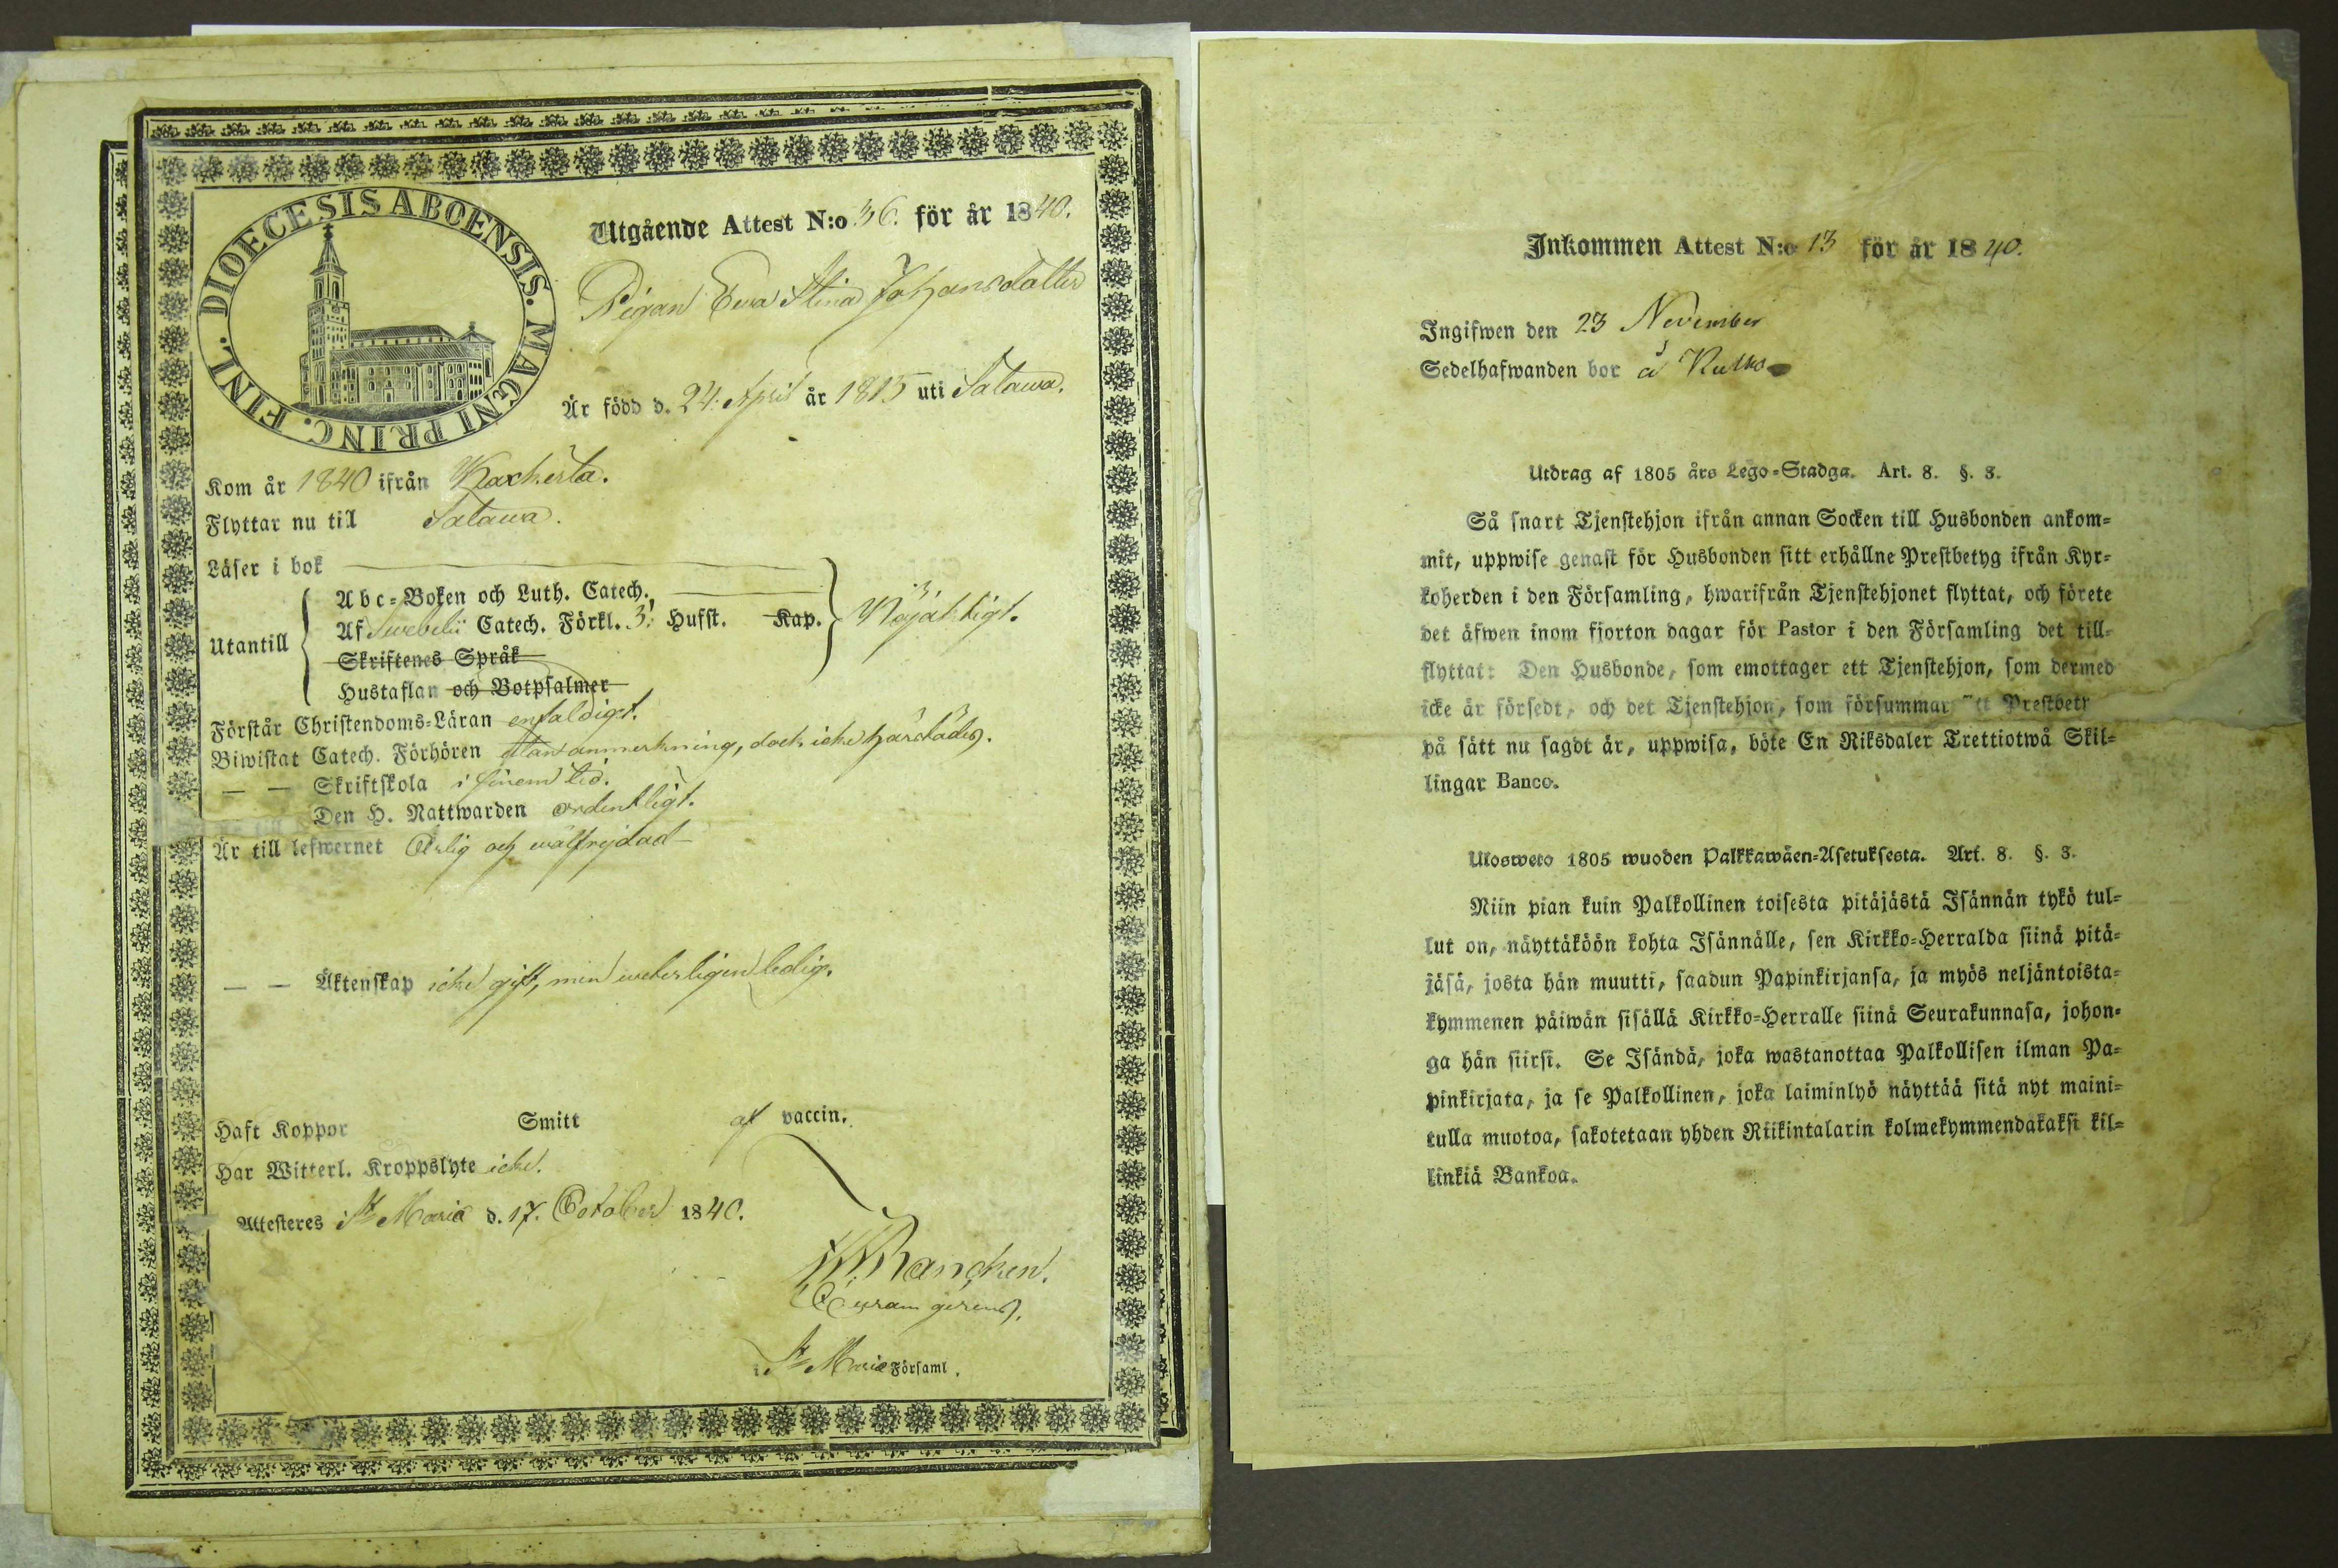 DIOECESIS ABOENSIS. MAGNI PRINC. FINL.
Utgående Attest N:o 36. för år 1840.
Pigan Ewa Stina Johansdotter
Är född d. 24. April år 1815 uti Satawa.
Kom år 1840 ifrån Kaxkerta.
Flyttar nu till Satawa.
Läser i bok
Utantill
Abc-Boken och Luth. Catech.
Af Swebelii Catech. Förkl. 3. Hufst. Kap.
Nöjaktigt.
Skriftenes Språk
Hustaflan och Botpsalmer
Förstår Christendoms-Läran enfaldigt.
Biwistat Catech. Förhören utan anmerkning, dock icke härstädes.
— — Skriftskola i sinom tid.
Den H. Nattwarden ordentligt.
Är till lefwernet Ärlig och wälfrejdad
— — Äktenskap icke gift, men weterligen ledig.
Haft Koppor Smitt af vaccin.
Har Witterl. Kroppslyte icke.
Attesteres i St Marie d. 17. October 1840.
Rancken.
Curam gerens.
i St Marie Församl.
Inkommen Attest N:o 13 för år 1840.
Ingifwen den 23 November
Sedelhafwanden bor å
Utdrag af 1805 års Lego-Stadga. Art. 8. §. 3.
Så snart Tjenstehjon ifrån annan Socken till Husbonden ankom-
mit, uppwise genast för Husbonden sitt erhållne Prestbetyg ifrån Kyr-
koherden i den Församling, hwarifrån Tjenstehjonet flyttat, och förete
det äfwen inom fjorton dagar för Pastor i den Församling det till-
flyttat: Den Husbonde, som emottager ett Tjenstehjon, som dermed
icke är försedt, och det Tjenstehjon, som försummar Prestbety
på sätt nu sagdt är, uppwisa, böte En Riksdaler Trettiotwå Skil-
lingar Banco.
Ulosweto 1805 wuoden Palkkawäen-Asetuksesta. Art. 8. §. 3.
Niin pian kuin Palkollinen toisesta pitäjästä Isännän tykö tul-
lut on, näyttäköön kohta Isännälle, sen Kirkko-Herralda siinä pitä-
jäsä, josta hän muutti, saadun Papinkirjansa, ja myös neljäntoista-
kymmenen päiwän sisällä Kirkko-Herralle siinä Seurakunnasa, johon-
ga hän siirsi. Se Isändä, joka wastanottaa Palkollisen ilman Pa-
pinkirjata, ja se Palkollinen, joka laiminlyö näyttää sitä nyt maini-
tulla muotoa, sakotetaan yhden Riikintalarin kolmekymmendakaksi kil-
linkiä Bankoa.